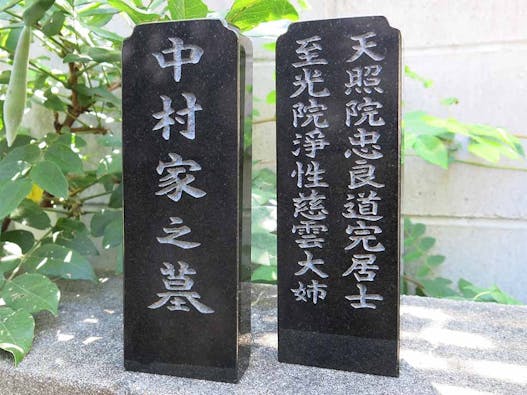 中村家之墓
天照院忠良道完居士
至光院淨性慈雲大姉